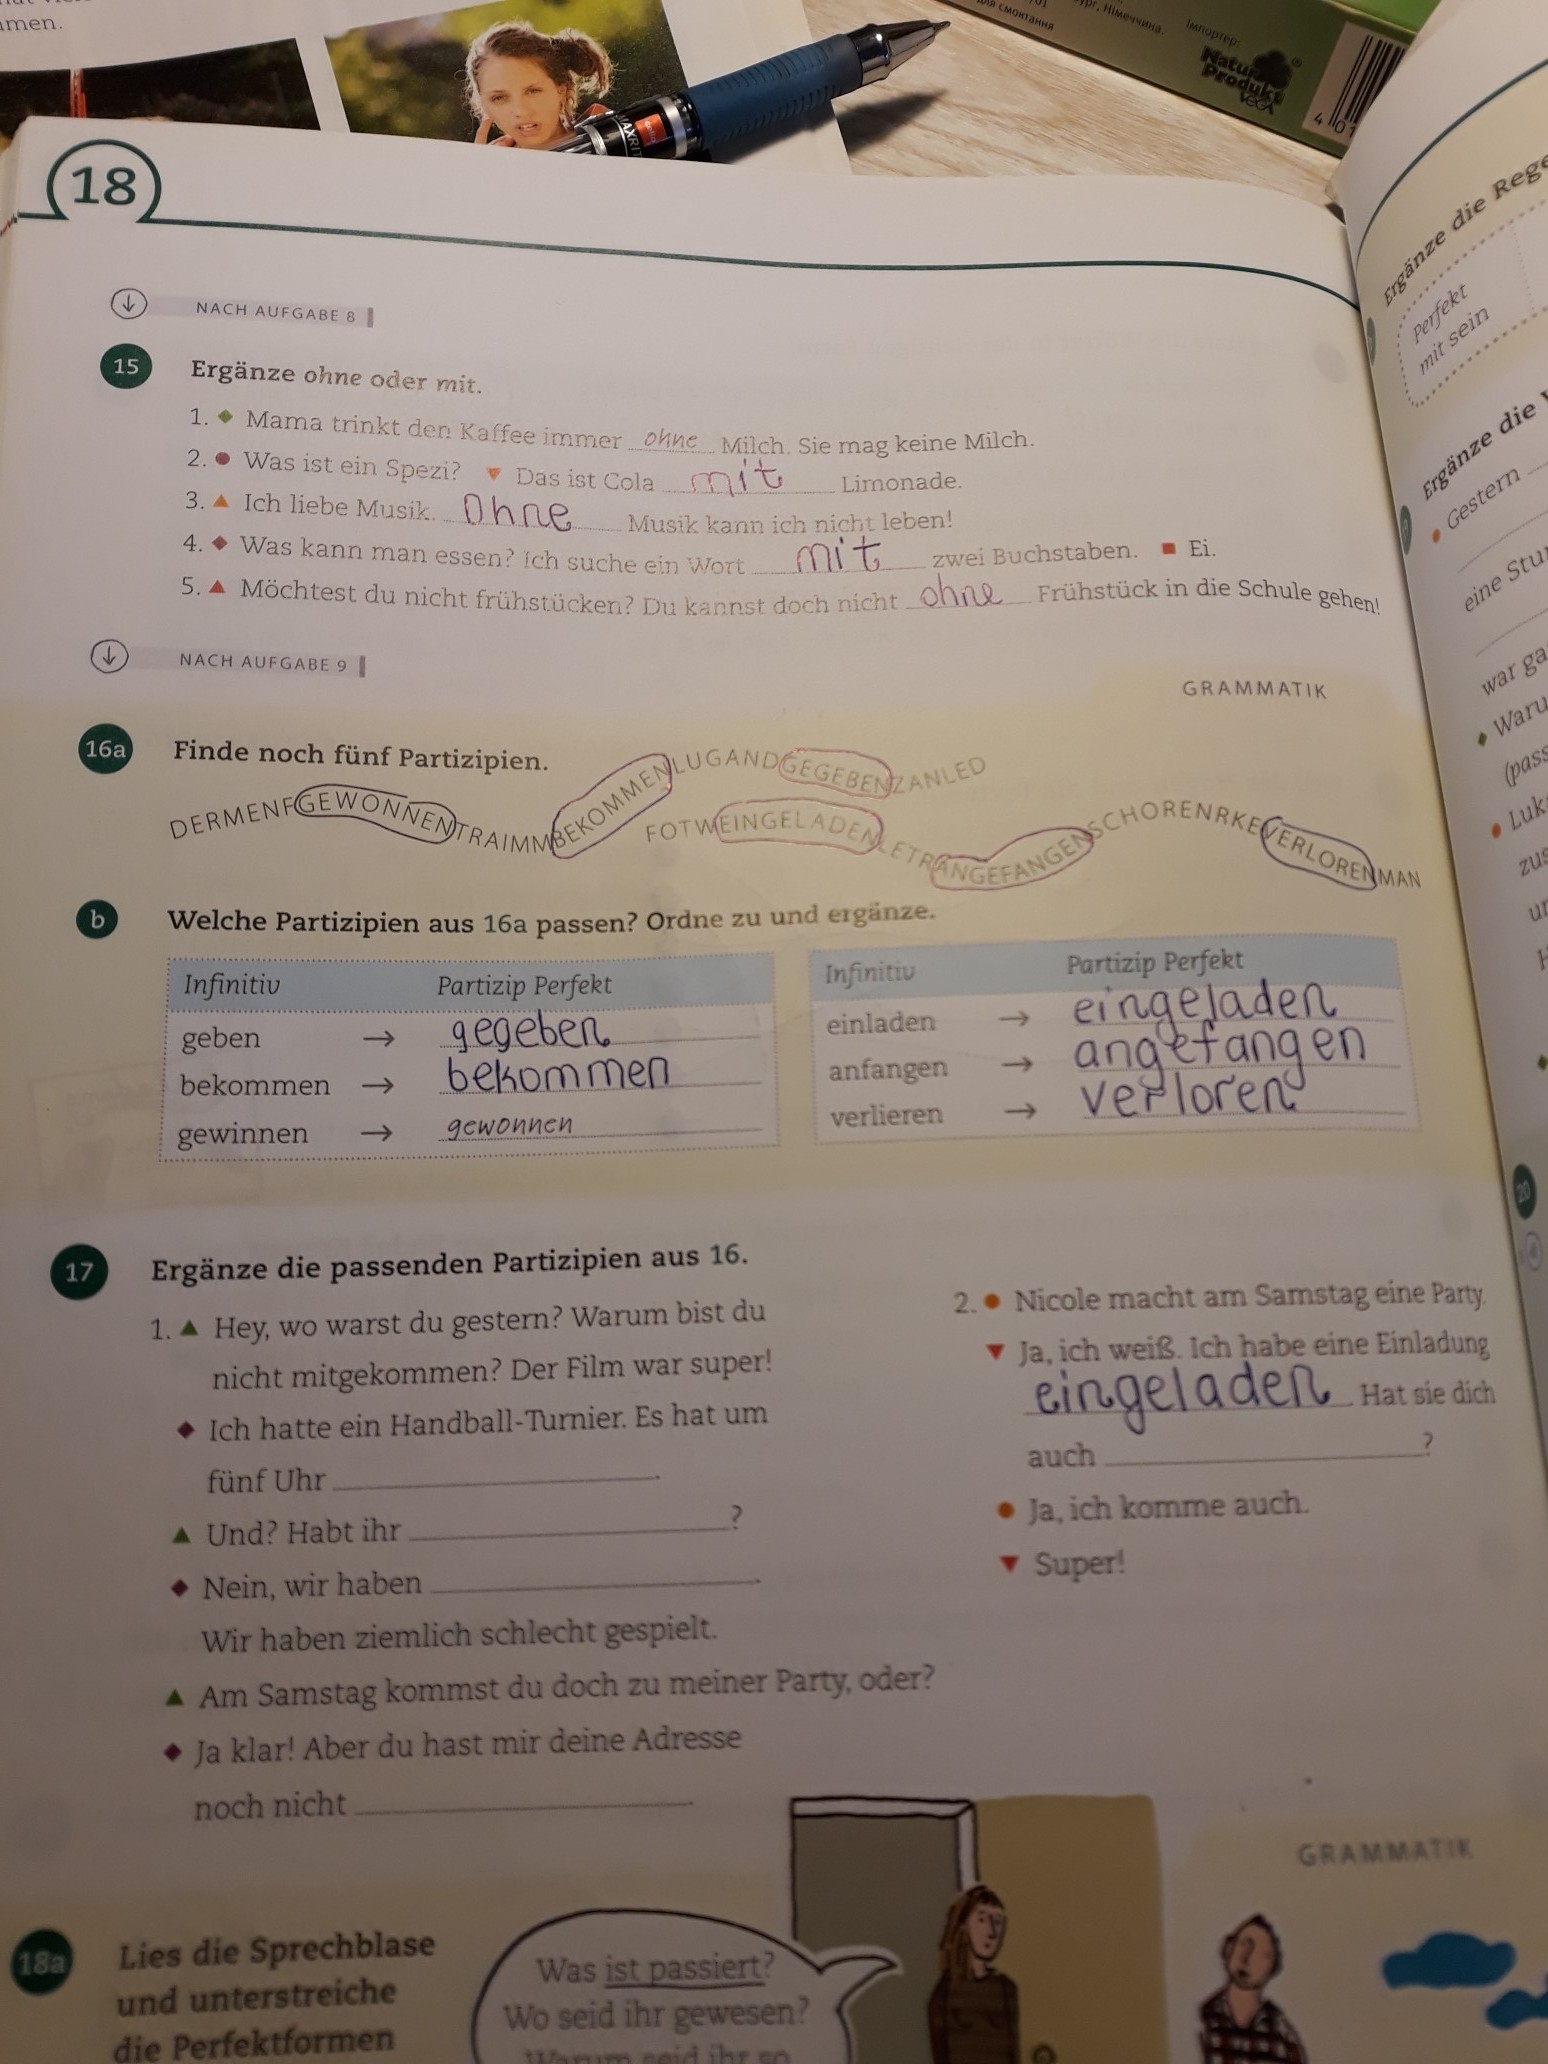 mmen.
Імпортер:
ург, Німеччина.
смоктання
Natur
Produkt
VEGA
4 01
MAXRIT
18
NACH AUFGABE 8
15 Ergänze ohne oder mit.
1. Mama trinkt den Kaffee immer ohne Milch. Sie mag keine Milch.
2. Was ist ein Spezi? Das ist Cola mit Limonade.
3. Ich liebe Musik. Ohne Musik kann ich nicht leben!
4. Was kann man essen? Ich suche ein Wort mit zwei Buchstaben. Ei.
5. Möchtest du nicht frühstücken? Du kannst doch nicht ohne Frühstück in die Schule gehen!
NACH AUFGABE 9
GRAMMATIK
16a Finde noch fünf Partizipien.
DERMENFGEWONNENTRAIMMBEKOMMENLUGANDGEGEBENZANLED
FOTWEINGELADENLETRANGEFANGENSCHORENRKEVERLORENMAN
b Welche Partizipien aus 16a passen? Ordne zu und ergänze.
Infinitiv Partizip Perfekt
geben → gegeben
bekommen → bekommen
gewinnen → gewonnen
Infinitiv Partizip Perfekt
einladen → eingeladen
anfangen → angefangen
verlieren → verloren
17 Ergänze die passenden Partizipien aus 16.
1. Hey, wo warst du gestern? Warum bist du
nicht mitgekommen? Der Film war super!
Ich hatte ein Handball-Turnier. Es hat um
fünf Uhr .
Und? Habt ihr ?
Nein, wir haben .
Wir haben ziemlich schlecht gespielt.
Am Samstag kommst du doch zu meiner Party, oder?
Ja klar! Aber du hast mir deine Adresse
noch nicht .
2. Nicole macht am Samstag eine Party.
Ja, ich weiß. Ich habe eine Einladung
eingeladen . Hat sie dich
auch ?
Ja, ich komme auch.
Super!
GRAMMATIK
18a Lies die Sprechblase
und unterstreiche
die Perfektformen
Was ist passiert?
Wo seid ihr gewesen?
Warum seid ihr so
Ergänze die Rege
Perfekt
mit sein
Ergänze die V
Gestern
eine Stu
war ga
Waru
(pass
Luk
zus
20